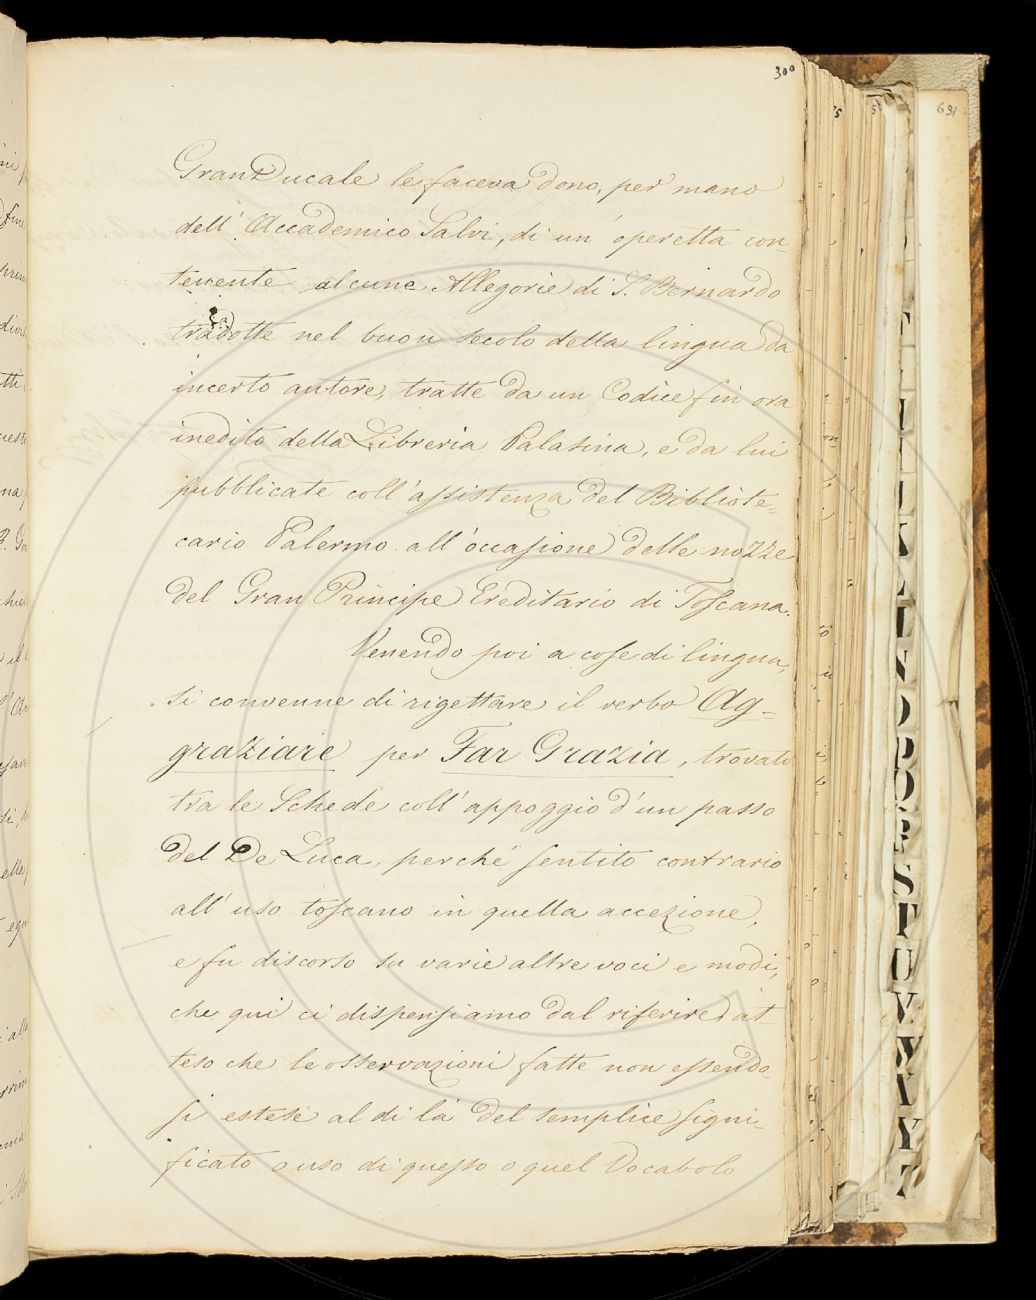 300
GranDucale le faceva dono, per mano
dell'Accademico Salvi, di un'operetta con-
tenente alcune Allegorie di S. Bernardo
tradotte nel buon secolo della lingua da
incerto autore, tratte da un Codice fin ora
inedito della Libreria Palatina, e da lui
pubblicate coll'assistenza del Bibliote-
cario Palermo all'occasione delle nozze
del Gran Principe Ereditario di Toscana.
Venendo poi a cose di lingua,
si convenne di rigettare il verbo Ag-
graziare per Far Grazia, trovato
tra le Schede coll'appoggio d'un passo
del De Luca, perché sentito contrario
all'uso toscano in quella accezione,
e fu discorso su varie altre voci e modi,
che qui ci dispensiamo dal riferire at-
teso che le osservazioni fatte non essendo-
si estese al di là del semplice signi-
ficato o uso di questo o quel Vocabolo
631